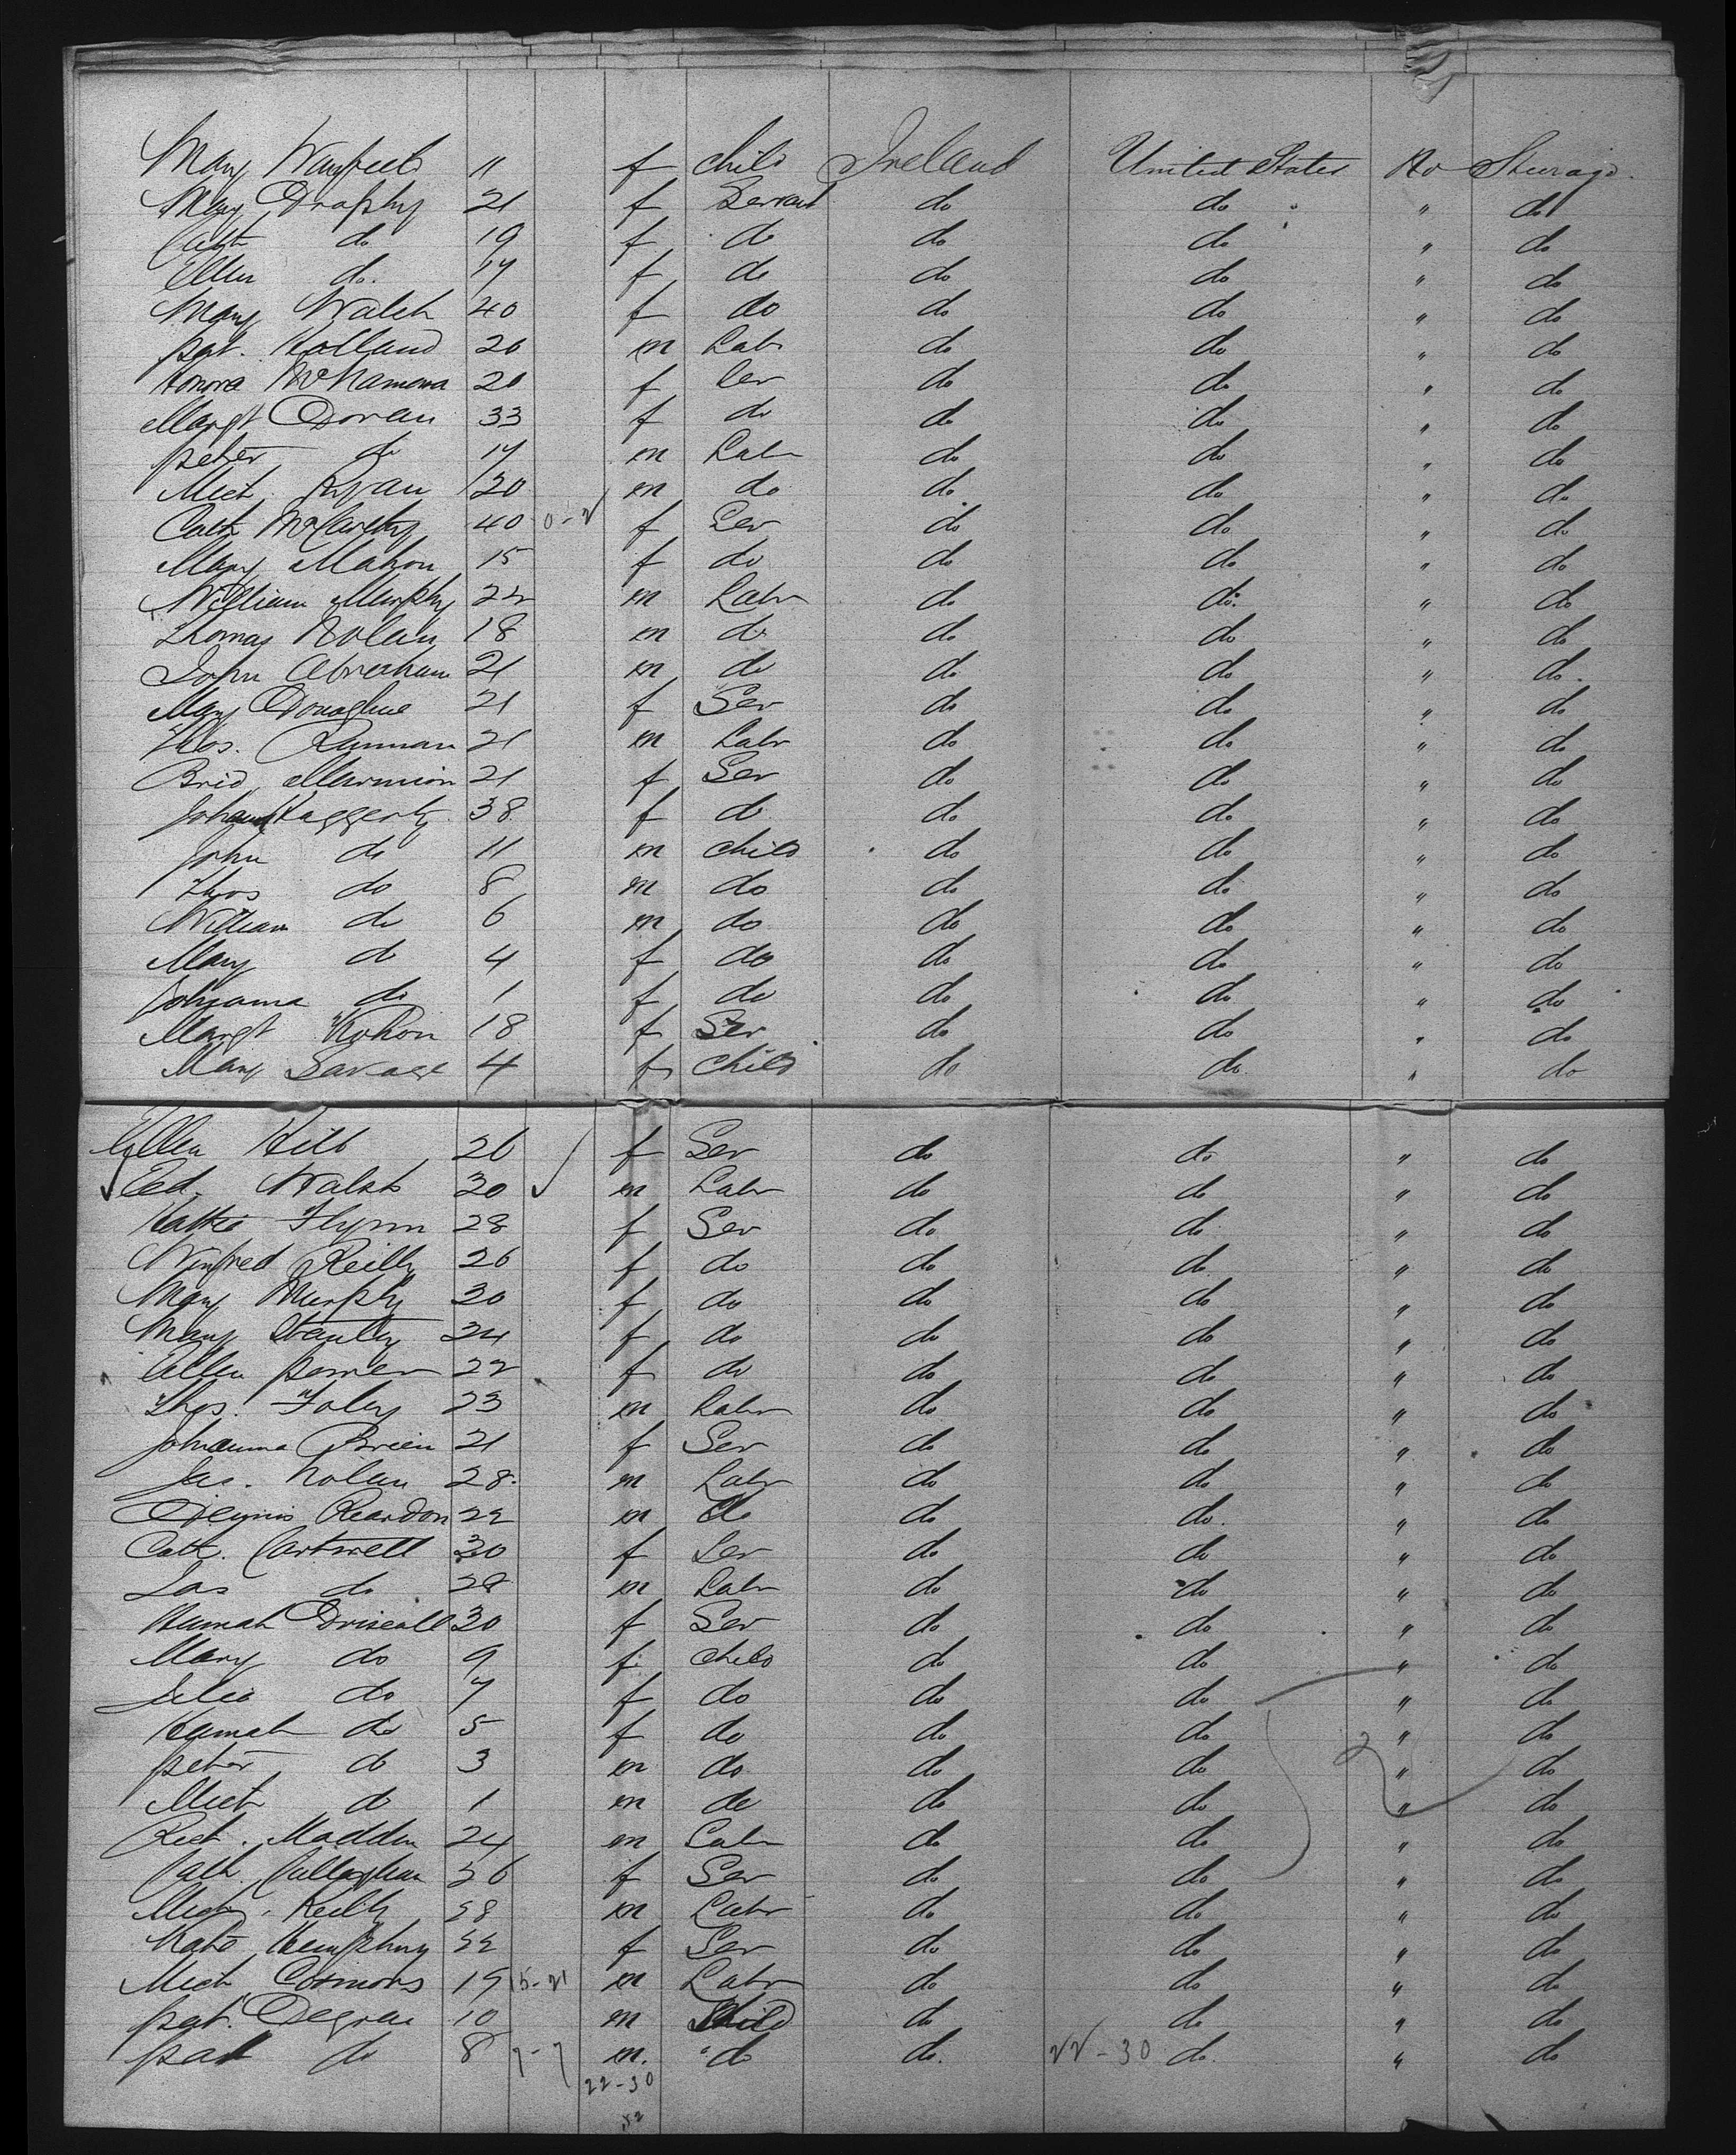 Mary 11 f child Ireland United States No Steerage
Mary Brophy 21 f Servant do do " do
Cath do 19 f do do do " do
Ellen do. 17 f do do do " do
Mary Walsh 40 f do do do " do
Pat. Holland 20 m Labr do do " do
Honora McNamara 20 f Ser do do " do
Margt Doran 33 f do do do " do
Peter do 17 m Labr do do " do
Mich Ryan 20 m do do do " do
Cath McCarthy 40 0-2 f Ser do do " do
Mary Mahon 15 f do do do " do
William Murphy 22 m Labr do do. " do
Thomas Nolan 18 m do do do " do
John Abraham 21 m do do do " do.
Mary Donaghue 21 f Ser do do " do
Thos. 21 m Labr do do " do
Brid 21 f Ser do do " do
Johana Haggerty 38 f do do do " do
John do 11 m child do do " do
Thos do 8 m do do do " do
William do 6 m do do do " do
Mary do 4 f do do do " do
Johanna do 1 f do do do " do
Margt 18 f Ser do do " do
Mary Savage 4 f child do do " do
Ellen 26 f Ser do do " do
Ed. Walsh 30 m Labr do do " do
Kattie Flynn 28 f Ser do do " do
Winfred Reilly 26 f do do do " do
Mary Murphy 30 f do do do " do
Mary 24 f do do do " do
Ellen 22 f do do do " do
Thos. Foley 23 m Labr do do " do
Johanna Brien 21 f Ser do do " do
Jas. Nolan 28 m Labr do do " do
Dennis Reardon 22 m do do do. " do
Cath. Cartwell 30 f Ser do do " do
Jas do 28 m Labr do do " do
Hannah Driscoll 30 f Ser do do " do
Mary do 9 f child do do " do
Julia do 7 f do do do " do
Hannah do 5 f do do do " do
Peter do 3 m do do do " do
Mich do 1 m do do do " do
Rich. Madden 24 m Labr do do " do
Cath. Callaghan f Ser do do " do
Mich. Reilly 28 m Labr do do " do
Kate Humphrey 22 f Ser do do " do
Mich Connors 19 15-21 m Labr do do " do
Pat. 10 m Child do do " do
do 8 m. do do. 22-30 do. " do
22-30